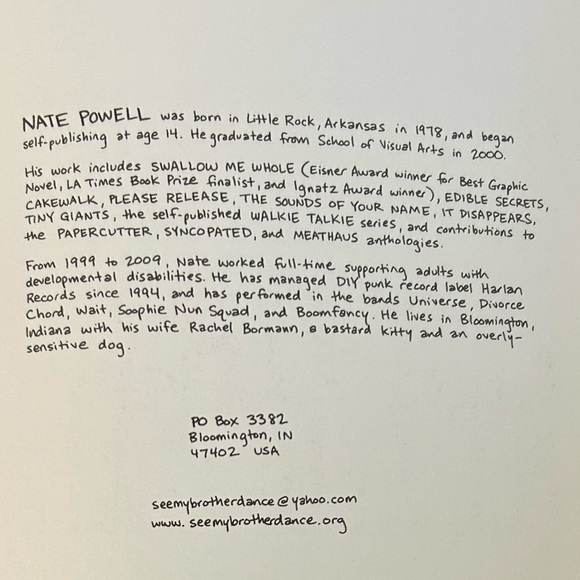 NATE POWELL was born in Little Rock, Arkansas in 1978, and began
self-publishing at age 14. He graduated from School of Visual Arts in 2000.
His work includes SWALLOW ME WHOLE (Eisner Award winner for Best Graphic
Novel, LA Times Book Prize finalist, and Ignatz Award winner), EDIBLE SECRETS,
CAKEWALK, PLEASE RELEASE, THE SOUNDS OF YOUR NAME, IT DISAPPEARS,
TINY GIANTS, the self-published WALKIE TALKIE series, and contributions to
the PAPERCUTTER, SYNCOPATED, and MEATHAUS anthologies.
From 1999 to 2009, Nate worked full-time supporting adults with
developmental disabilities. He has managed DIY punk record label Harlan
Records since 1994, and has performed in the bands Universe, Divorce
Chord, Wait, Soophie Nun Squad, and Boomfancy. He lives in Bloomington,
Indiana with his wife Rachel Bormann, a bastard kitty and an overly-
sensitive dog.
PO Box 3382
Bloomington, IN
47402 USA
seemybrotherdance@yahoo.com
www.seemybrotherdance.org